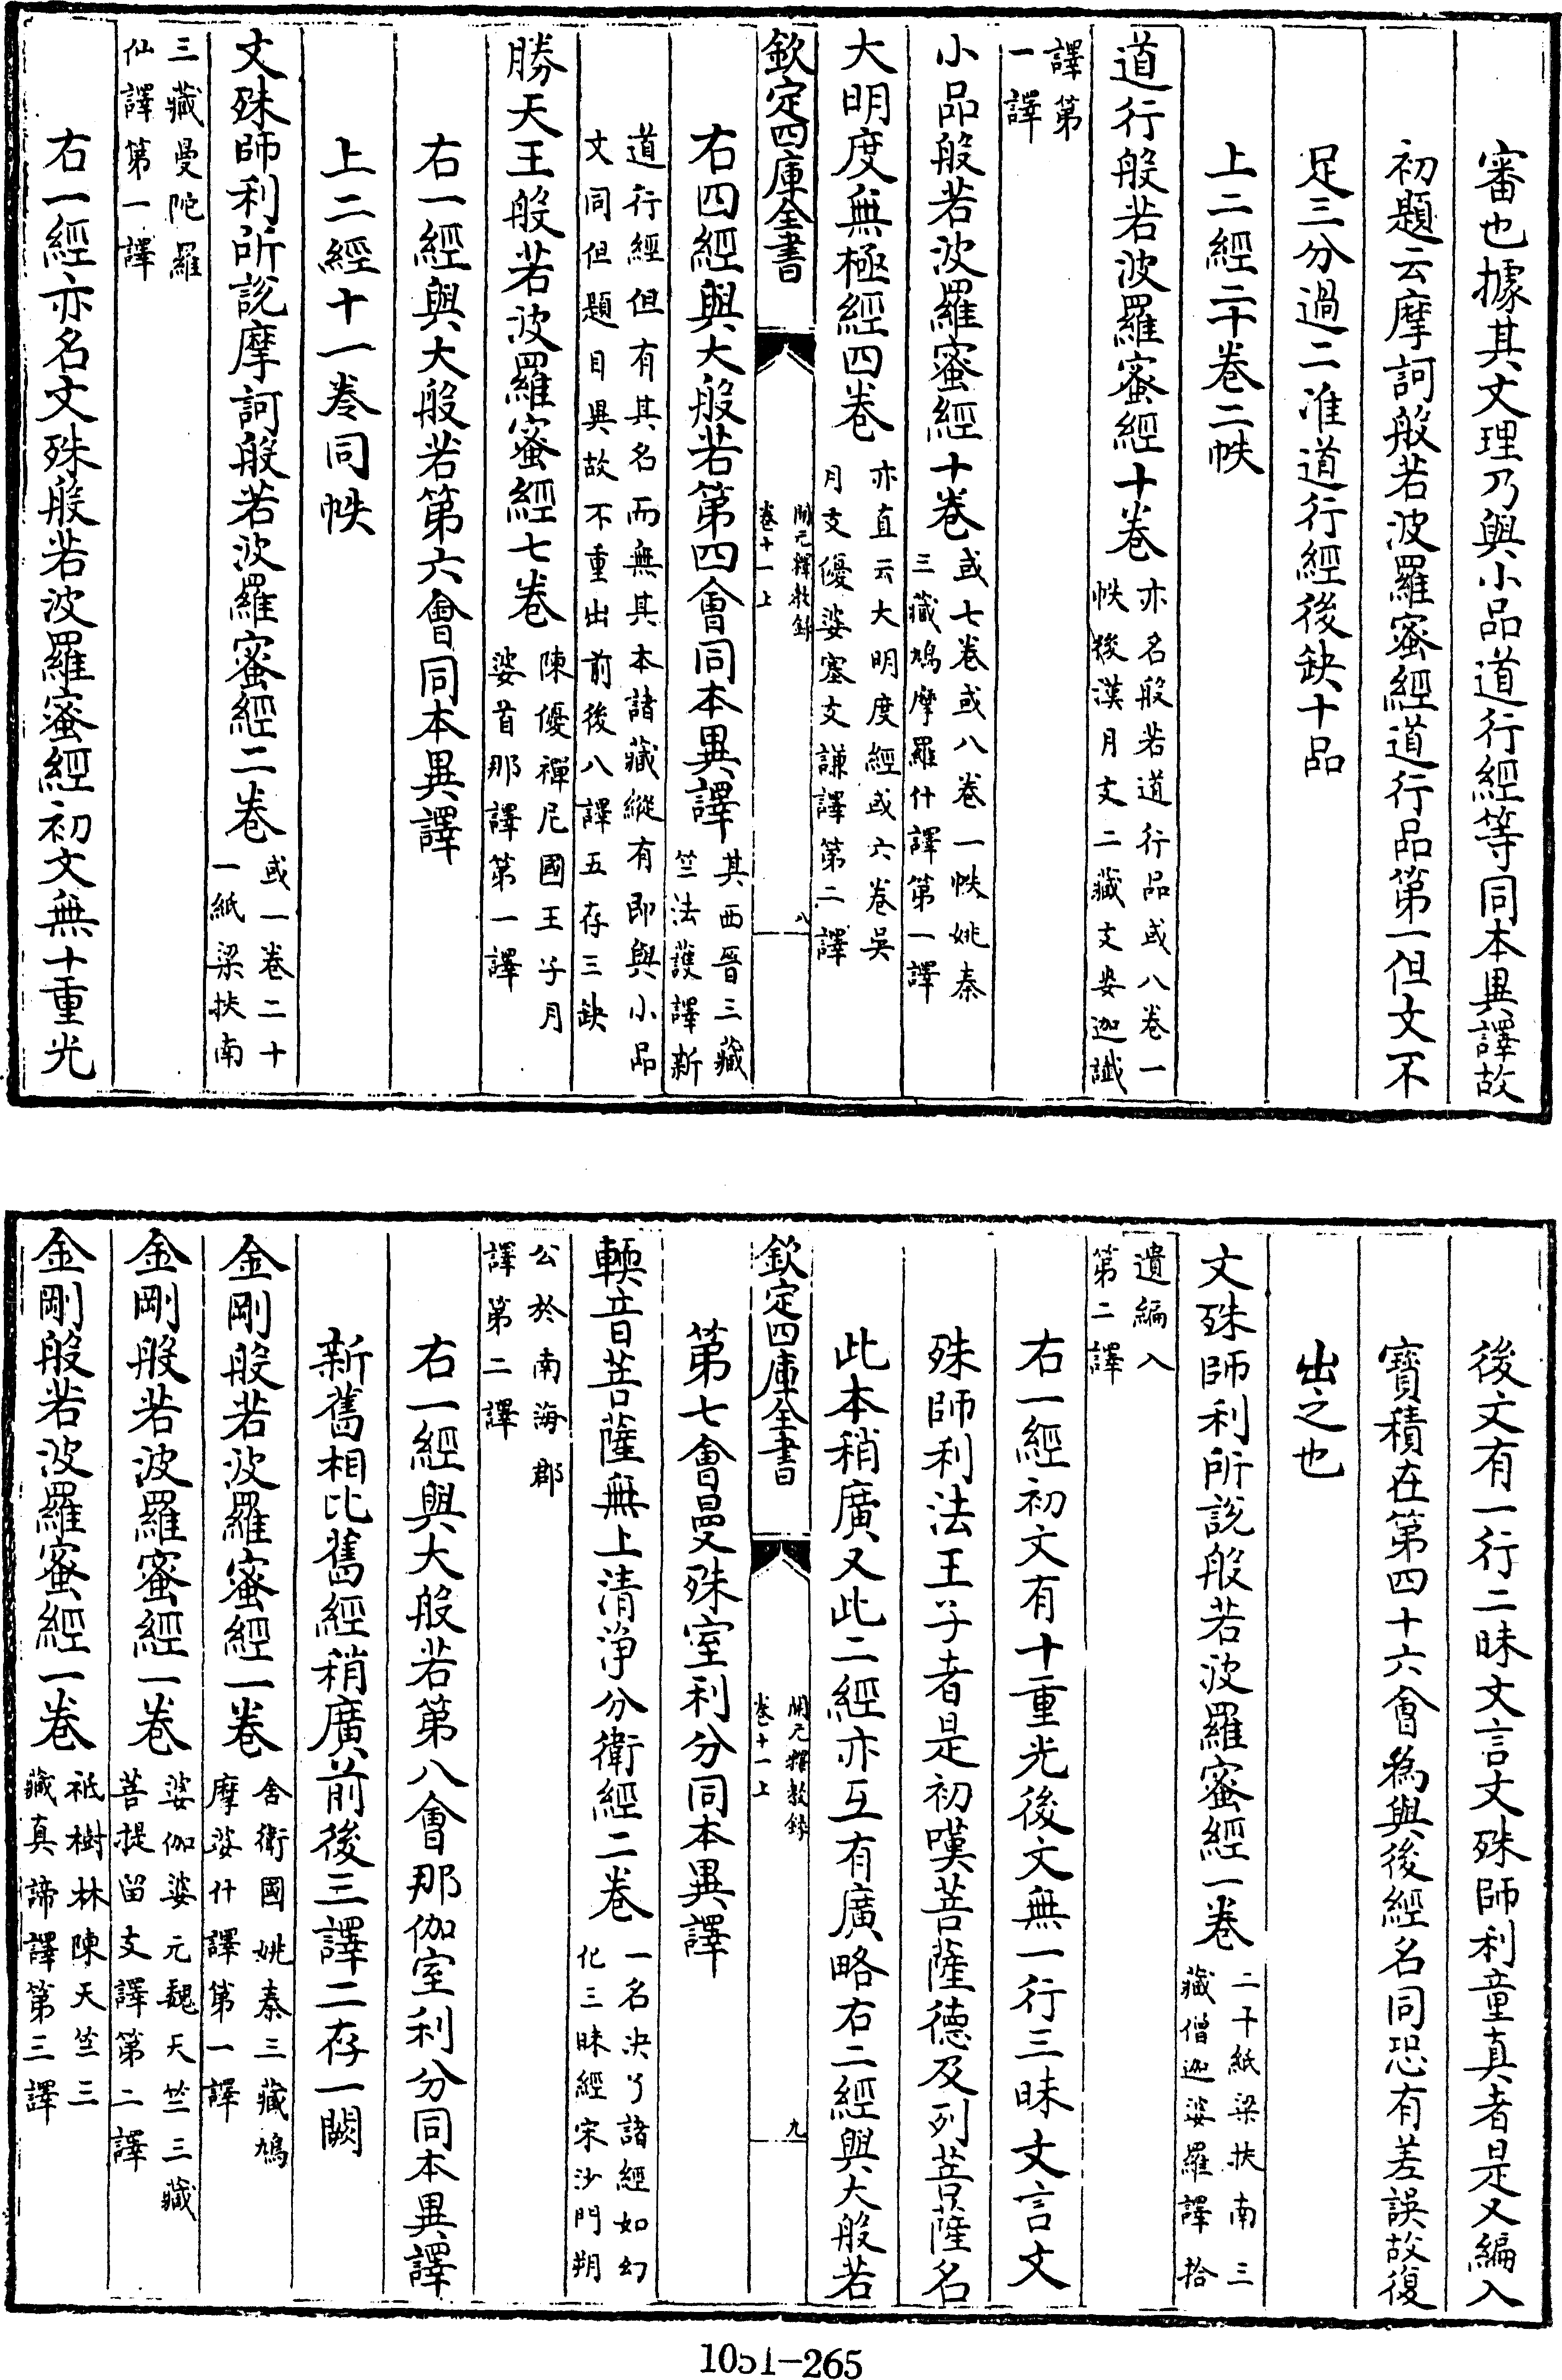 審也據其文理乃與小品道行經等同本異譯故
初題云摩訶般若波羅蜜經道行品第一但文不
足三分過二准道行經後缺十品
上二經二十卷二帙
道行般若波羅蜜經十卷
亦名般若道行品或八卷一
帙後漢月支二藏支婁迦讖
譯第
一譯
小品般若波羅蜜經十卷
或七卷或八卷一帙姚秦
三藏鳩摩羅什譯第一譯
大明度無極經四卷
亦直云大明度經或六卷吳
月支優婆塞支謙譯第二譯
欽定四庫全書
開元釋教錄
卷十一上
八
右四經與大般若第四會同本異譯
其西晉三藏
竺法護譯新
道行經但有其名而無其本諸藏縱有即與小品
文同但題目異故不重出前後八譯五存三缺
勝天王般若波羅蜜經七卷
陳優禪尼國王子月
婆首那譯第一譯
右一經與大般若第六會同本異譯
上二經十一卷同帙
文殊師利所說摩訶般若波羅蜜經二卷
或一卷二十
一紙梁扶南
三藏曼陀羅
仙譯第一譯
右一經亦名文殊般若波羅蜜經初文無十重光
後文有一行二昧文言文殊師利童真者是又編入
寶積在第四十六會為與後經名同恐有差誤故復
出之也
文殊師利所說般若波羅蜜經一卷
二十紙梁扶南三
藏僧迦婆羅譯拾
遺編入
第二譯
右一經初文有十重光後文無一行三昧文言文
殊師利法王子者是初嘆菩薩德及列菩薩名
此本稍廣又此二經亦互有廣略右二經與大般若
欽定四庫全書
開元釋教錄
卷十一上
九
第七會曼殊室利分同本異譯
輭音菩薩無上清淨分衛經二卷
一名决了諸經如幻
化三昧經宋沙門翔
公於南海郡
譯第二譯
右一經與大般若第八會那伽室利分同本異譯
新舊相比舊經稍廣前後三譯二存一闕
金剛般若波羅蜜經一卷
舍衛國姚秦三藏鳩
摩婆什譯第一譯
金剛般若波羅蜜經一卷
婆伽婆元魏天竺三藏
菩提留支譯第二譯
金剛般若波羅蜜經一卷
祗樹林陳天竺三
藏真諦譯第三譯
1051-265